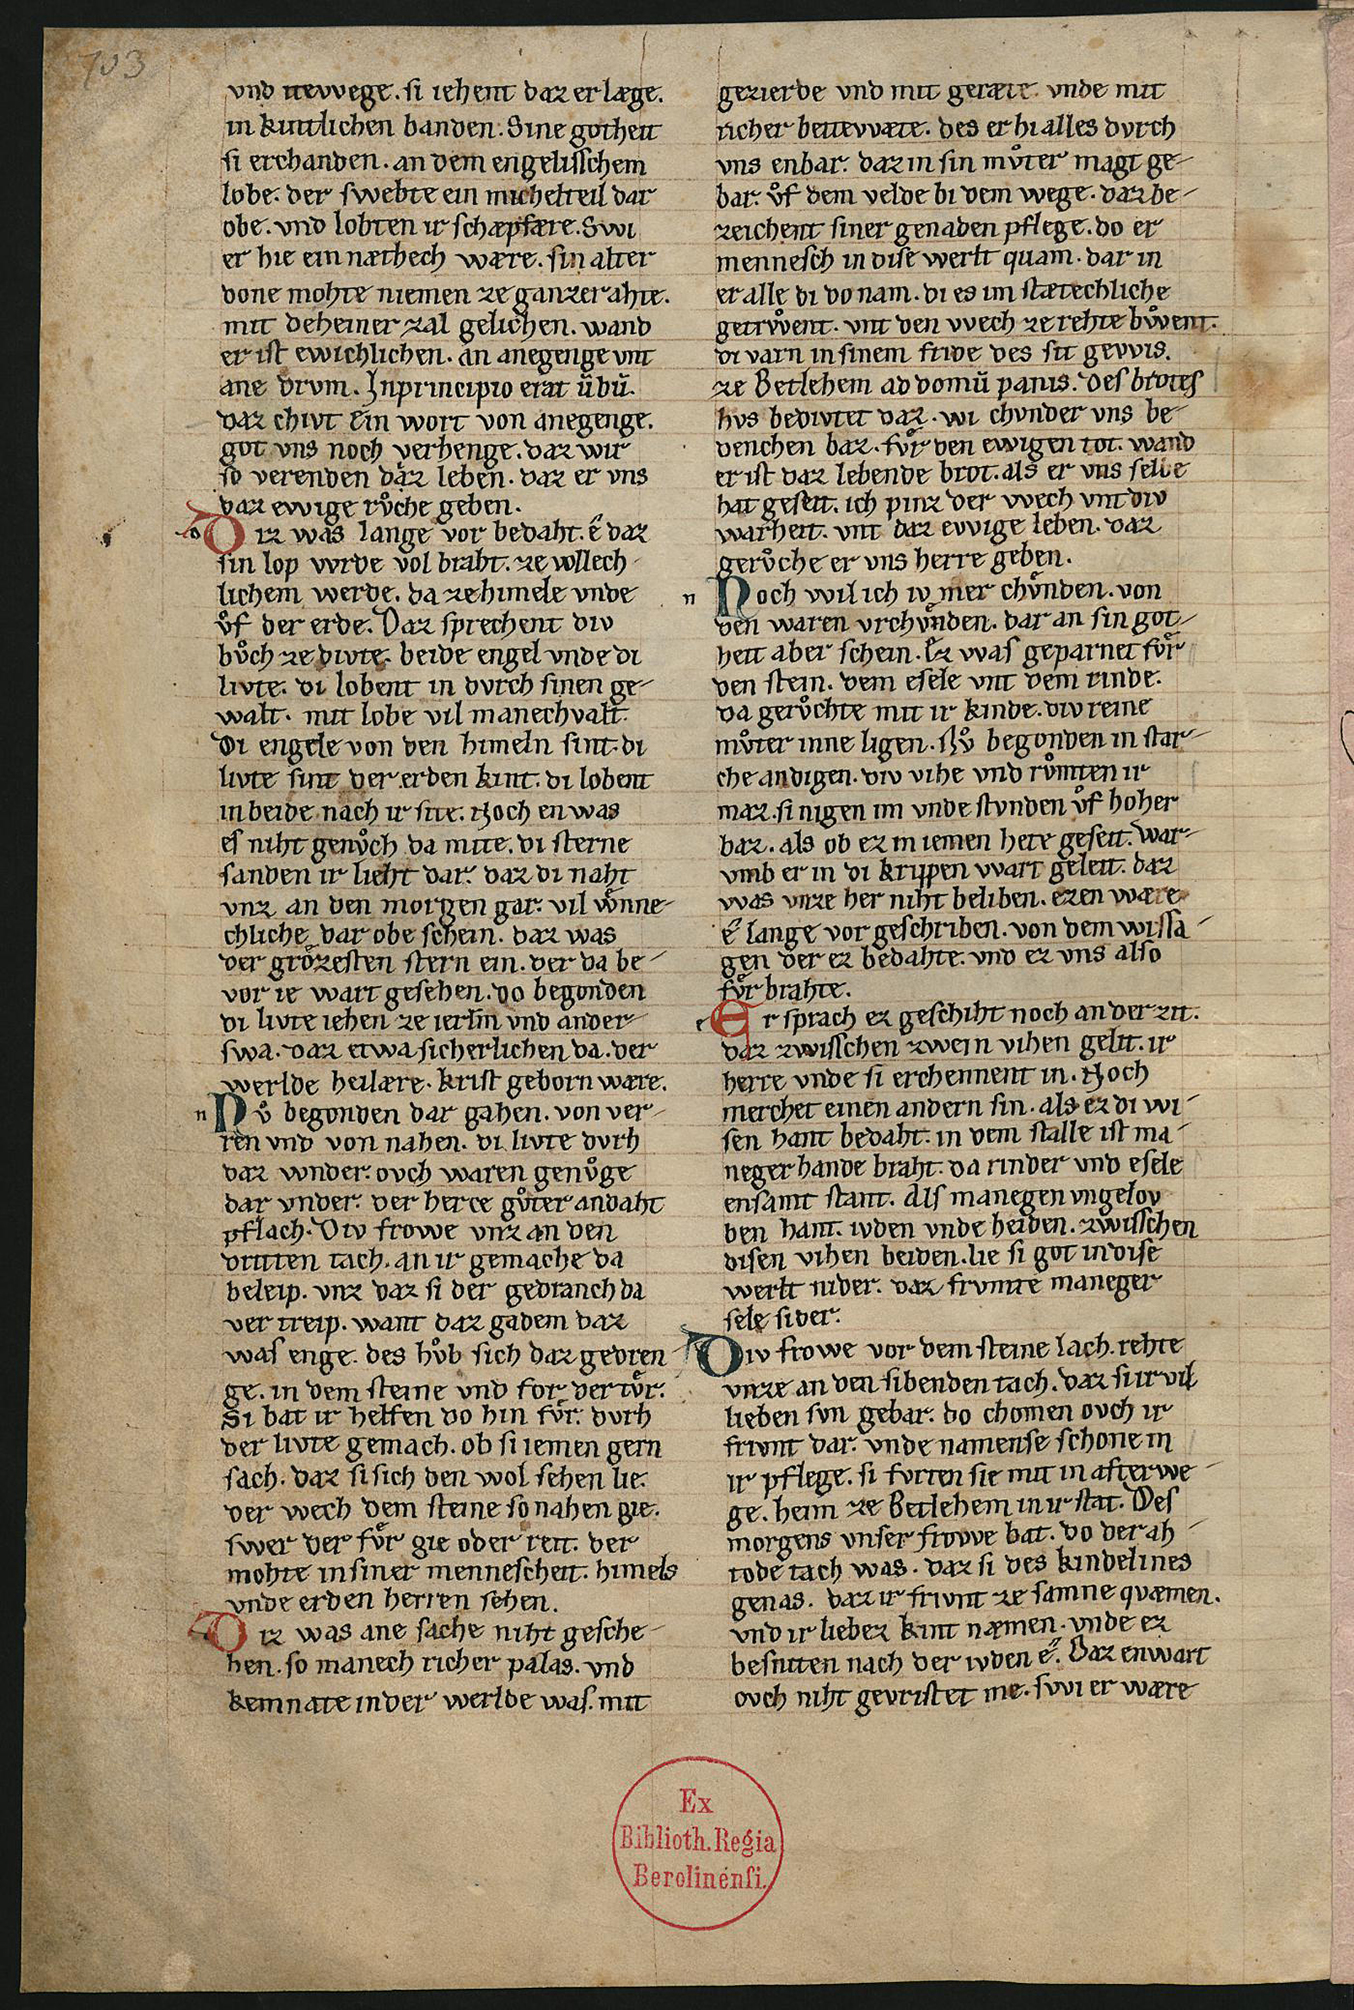 703
vnd itewege. si iehent daz er læge.
in kintlichen banden. Sine gotheit
si erchanden. an dem engelisschem
lobe. der swebte ein michelteil dar
obe. vnd lobten ir schæpfære. Swi
er hie ein næthech wære. sin alter
done mohte niemen ze ganzer ahte.
mit deheiner zal gelichen. wand
er ist ewichlichen. an anegenge vnt
ane drvm. Inprincipio erat ůbů.
daz chivt Ein wort von anegenge.
got vns noch verhenge. daz wir
so verenden daz leben. daz er vns
daz ewige růche geben.
Diz was lange vor bedaht. ê daz
sin lop vvrde vol braht. ze wllech
lichem werde. da ze himele vnde
ůf der erde. Daz sprechent div
bůch ze divte. beide engel vnde di
livte. di lobent in dvrch sinen ge-
walt. mit lobe vil manechvalt.
Di engele von den himeln sint. di
livte sint der erden kint. di lobent
in beide nach ir site. Noch en was
es niht genůch da mite. di sterne
sanden ir lieht dar. daz di naht
vnz an den morgen gar. vil wͦnne-
chliche dar obe schein. daz was
der grôzesten stern ein. der da be-
vor ie wart gesehen. do begonden
di livte iehen ze ierlm vnd ander-
swa. daz etwa sicherlichen da. der
werlde heilære. krist geborn wære.
n Nů begonden dar gahen. von ver-
ren vnd von nahen. di livte dvrh
daz wnder. ovch waren genůge
dar vnder. der herce gůter andaht
pflach. Div frowe vnz an den
dritten tach. an ir gemache da
beleip. vnz daz si der gedranch da
ver treip. want daz gadem daz
was enge. des hůb sich daz gedren
ge. in dem steine vnd for der tůr.
Si bat ir helfen do hin fůr. dvrh
der livte gemach. ob si iemen gern
sach. daz si sich den wol sehen lie.
der wech dem steine so nahen gie.
swer der fůr gie oder reit. der
mohte in siner menneschheit. himels
vnde erden herren sehen.
Diz was ane sache niht gesche-
hen. so manech richer palas. vnd
kemnate in der werlde was. mit
gezierde vnd mit geræte vnde mit
richer bettewæte. des er hi alles dvrch
vns enbar. daz in sin můter magt ge-
bar. ůf dem velde bi dem wege. daz be-
zeichent siner genaden pflege. do er
mennesch in dise werlt quam. dar in
er alle di do nam. di es im stætechliche
getrůwent. vnt den vvech ze rehte bůwent.
di varn in sinem fride des sit gevvis.
ze Betlehem ad domů panis. Des brotes
hvs bedivtet daz. wi chvnder vns be-
denchen baz. fůr den ewigen tot. wand
er ist daz lebende brot. als er vns selbe
hat geseit. ich pinz der vvech vnt div
warheit. vnt daz evvige leben. daz
gerůche er vns herre geben.
n Noch wil ich iv mer chůnden. von
den waren vrchvnden. dar an sin got-
heit aber schein. Ez vvas geparnet fůr
den stein. dem esele vnt dem rinde.
da gerůchte mit ir kinde. div reine
můter inne ligen. Nů begonden in star-
che andigen. div vihe vnd růmten ir
maz. si nigen im vnde stvnden ůf hoher
baz. als ob ez in iemen hete geseit. war-
vmb er in di krippen vvart geleit. daz
vvas vnze her niht beliben. ezen wære
ê lange vor geschriben. von dem wissa-
gen der ez bedahte. vnd ez vns also
fůr brahte.
e Er sprach ez geschiht noch an der zit.
daz zwisschen zwein vihen gelit. ir
herre vnde si erchennent in. Noch
merchet einen andern sin. als ez di wi-
sen hant bedaht. in dem stalle ist ma-
neger hande braht. da rinder vnd esele
ensamt stant. Als manegen vngelov
ben hant. ivden vnde heiden. zwisschen
disen vihen beiden. lie si got in dise
werlt nider. daz frvmte maneger
sele sider.
Div frowe vor dem steine lach. rehte
vnze an den sibenden tach. daz si ir vil
lieben svn gebar. do chomen ovch ir
frivnt dar. vnde namense schone in
ir pflege. si fvrten sie mit in after we-
ge. heim ze Betlehem in ir stat. Des
morgens vnser frovve bat. do der ah-
tode tach was. daz si des kindelines
genas. daz ir frivnt ze samne quæmen.
vnd ir liebez kint næmen. vnde ez
besniten nach der ivden ê. Daz enwart
ovch niht gevristet me. svvi er wære
Ex
Biblioth. Regia
Berolinensi.